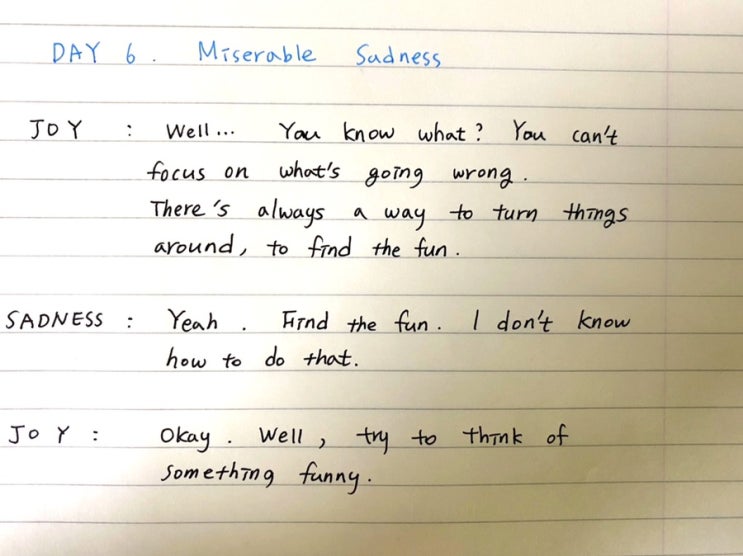 DAY 6. Miserable Sadness
JOY : Well... You know what? You can't
focus on what's going wrong.
There's always a way to turn things
around, to find the fun.
SADNESS : Yeah. Find the fun. I don't know
how to do that.
JOY : Okay. Well, try to think of
something funny.